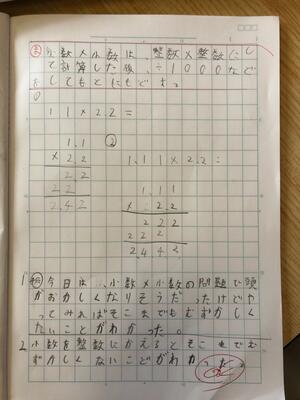 ま 小数×小数は、整数×整数にし
て計算した後、÷1000など
をしてもとにもどす。
11×2.2=
1.1 ②
×2.2
22
22
2.42
1.11×2.2=
1.11
×2.2
222
222
2.442
1 今日は、小数×小数の問題で頭
がおかしくなりそうだったけどや
ってみればそこまでもむずかしく
ないことがわかった。
2 小数を整数にかえるとそこまでむ
ずかしくないことがわかった。